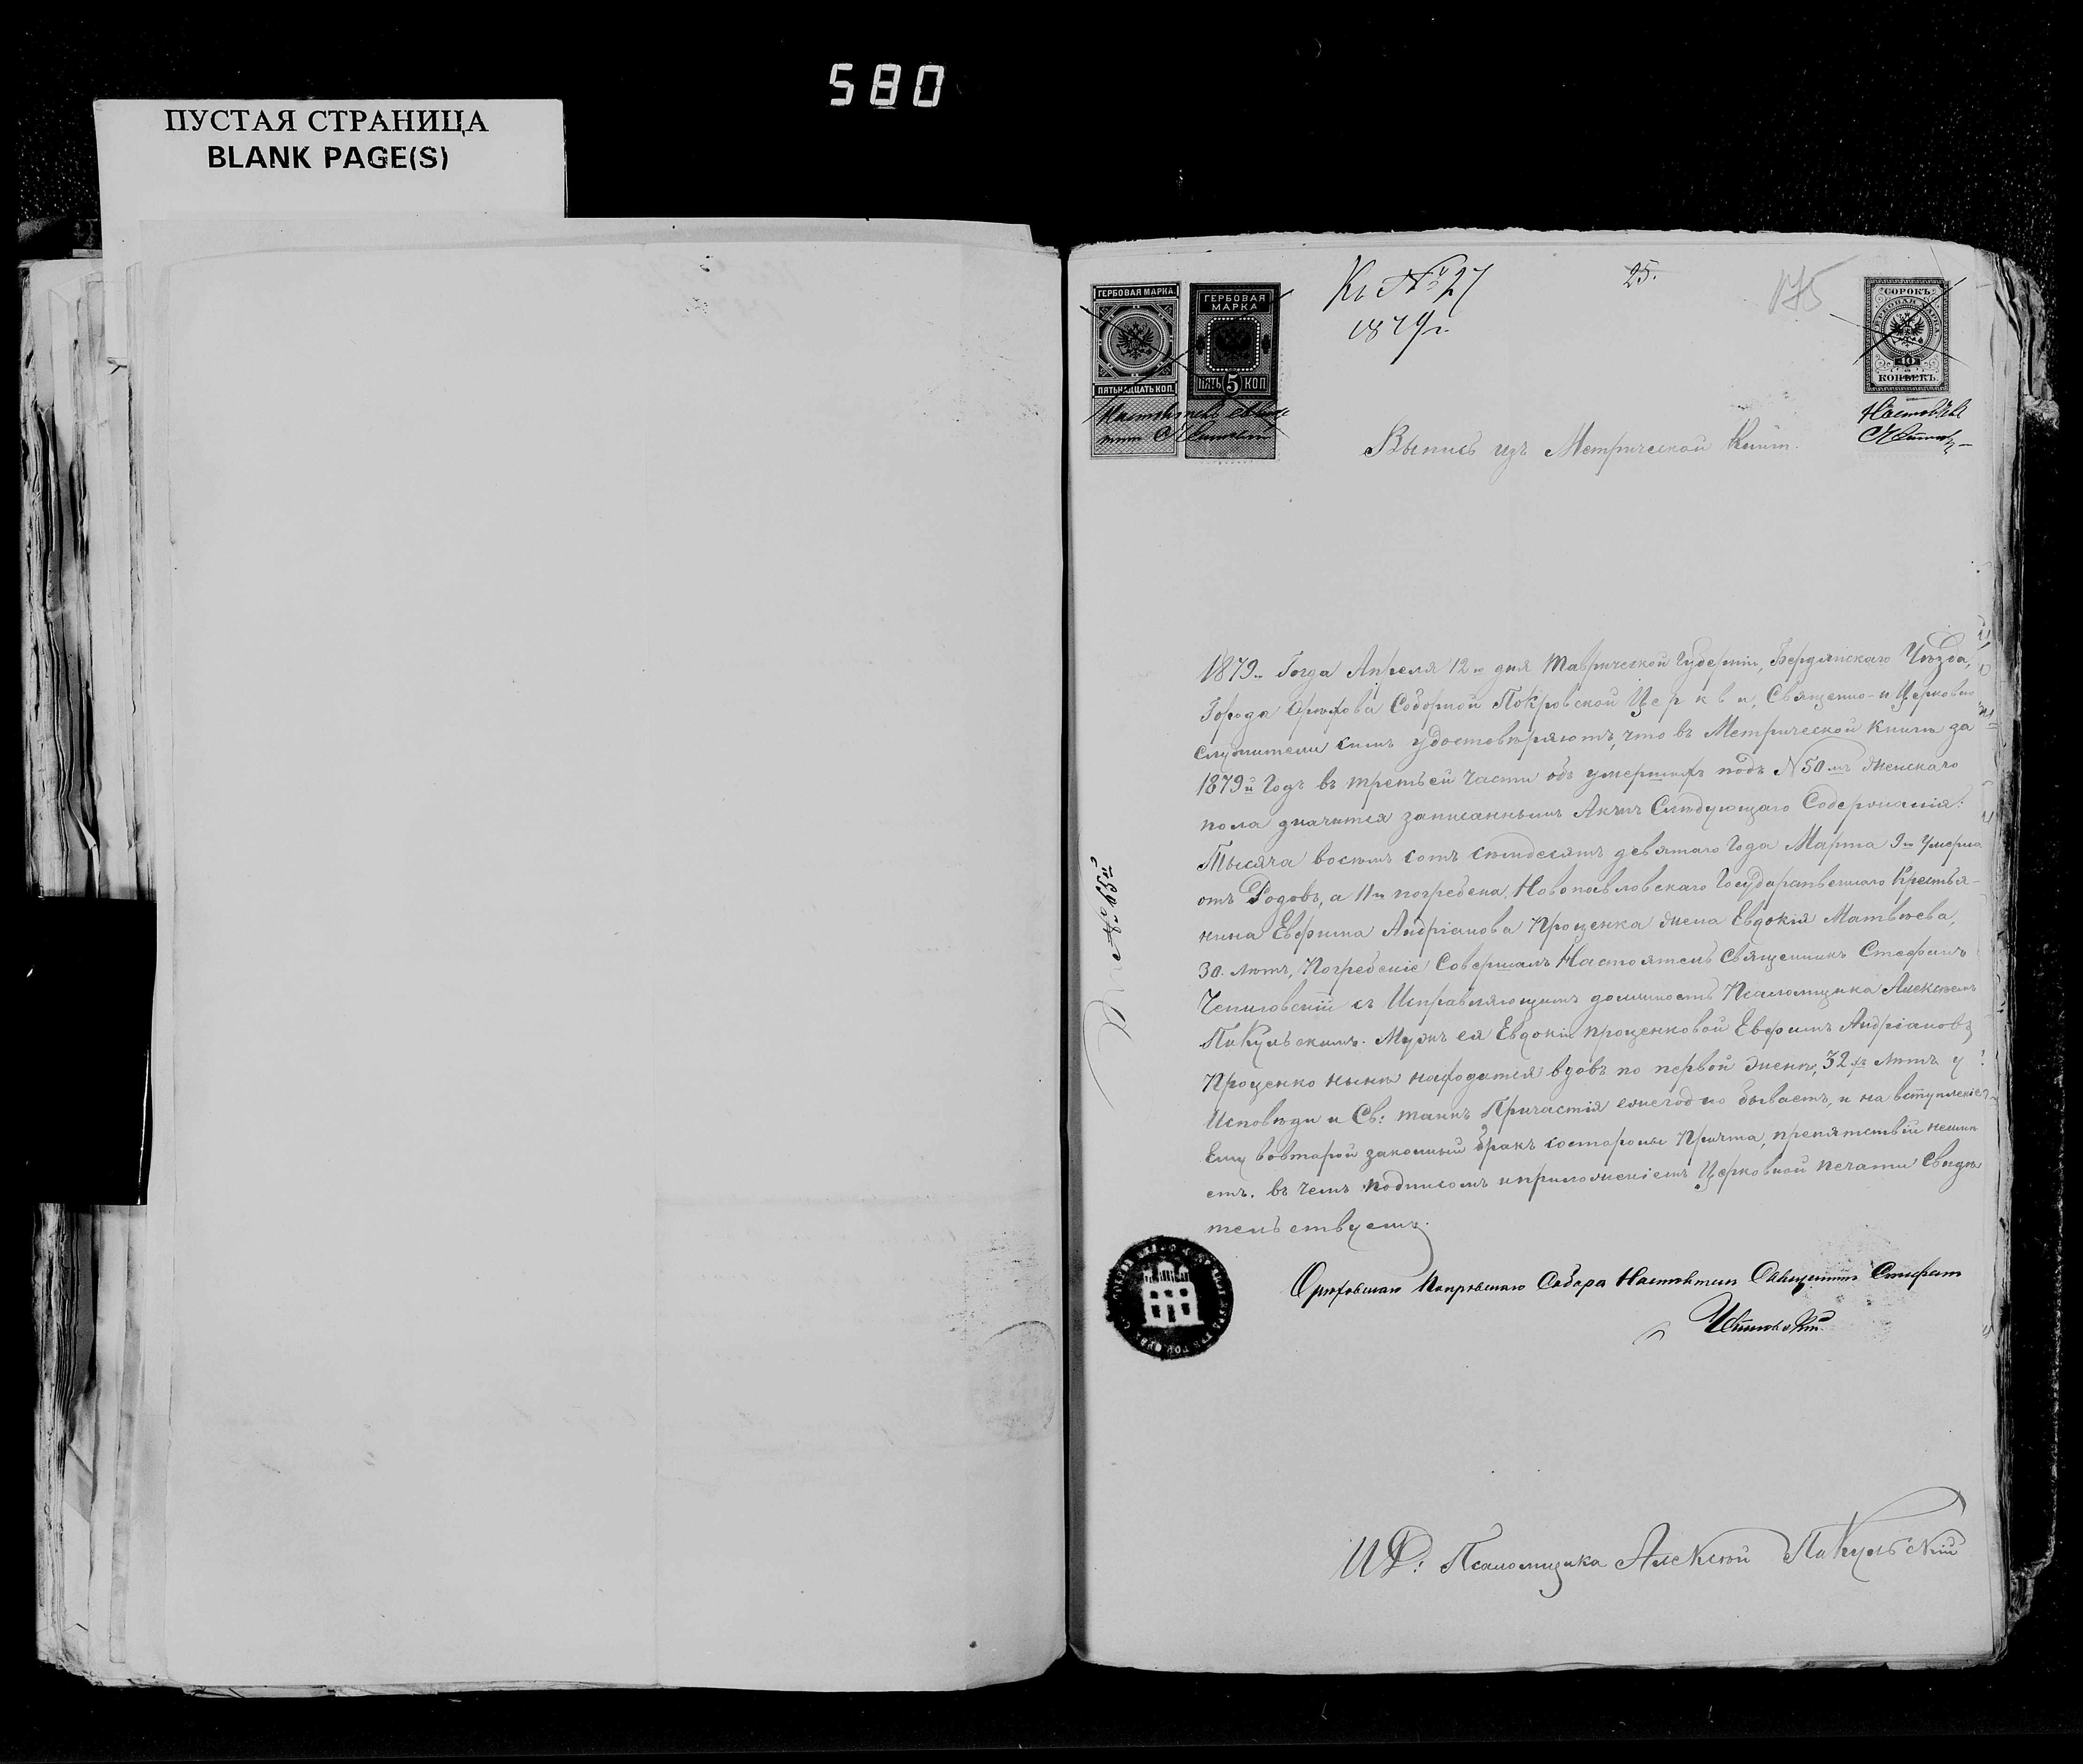 580
ПУСТАЯ СТРАНИЦА
BLANK PAGE(S)
Къ № 27
1879 г.
25.
175
ГЕРБОВАЯ МАРКА.
ПЯТЬНАДЦАТЬ КОП.
ГЕРБОВАЯ МАРКА
ПЯТЬ 5 КОП
СОРОКЪ
ГЕРБОВАЯ МАРКА
40
КОПѢЕКЪ
Выпись изъ Метрической Книги.
1879го Года Апреля 12го дня Таврической Губерніи, Бердянскаго Уѣзда,
Города Орѣхова Соборной Покровской Церкви, Священно-и Церковно
служители симъ удостовѣряютъ, что въ Метрической книгѣ за
1879й Годъ въ третьей части объ умершихъ подъ № 50мъ женскаго
пола значится записаннымъ Актъ Слѣдующаго Содержанія:
Тысяча восемь сотъ семдесятъ девятаго Года Марта 9го Умерла
отъ Родовъ, а 11го погребена, Новопавловскаго Государственнаго Крестья-
нина Евфима Андріанова Проценка жена Евдокія Матвѣева,
30. лѣтъ, Погребеніе Совершалъ Настоятель Священникъ Стефанъ
съ Исправляющимъ должность Псаломщика Алексѣемъ
Пикульскимъ. Мужъ ея Евдокіи Проценковой Евфимъ Андріановъ
Проценко нынѣ находится вдовъ по первой женѣ, 32хъ лѣтъ у
Исповѣди и Св: таинъ Причастія ежегодно бываетъ, и на вступленіе
Ему вовторой законный бракъ состороны Причта, препятствій неимѣ
етъ. въ чемъ подписомъ иприложеніемъ Церковной печати Свидѣ
тельствуемъ.
№ 65й
Орѣховскаго Покровскаго Собора Настоятель Священникъ Стефанъ
И Д: Псаломщика Алексѣй Пикульскій